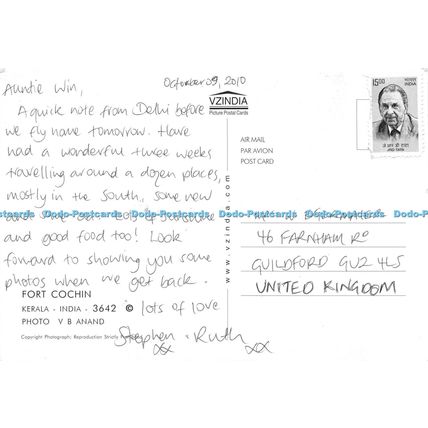 October 09, 2010
Auntie Win,
A quick note from Delhi before
we fly home tomorrow. Have
had a wonderful three weeks
travelling around a dozen places,
mostly in the South, some new
and good food too! Look
forward to showing you some
photos when we get back.
lots of love
Stephen + Ruth
xx xx
VZINDIA
Picture Postal Cards
AIR MAIL
PAR AVION
POST CARD
www.vzindia.com
15.00
भारत INDIA
JRD TATA
46 FARNHAM RD
GUILDFORD GU2 4LS
UNITED KINGDOM
Dodo-Postcards Dodo-Postcards Dodo-Postcards Dodo-Postcards
FORT COCHIN
KERALA - INDIA - 3642 ©
PHOTO V B ANAND
Copyright Photograph; Reproduction Strictly